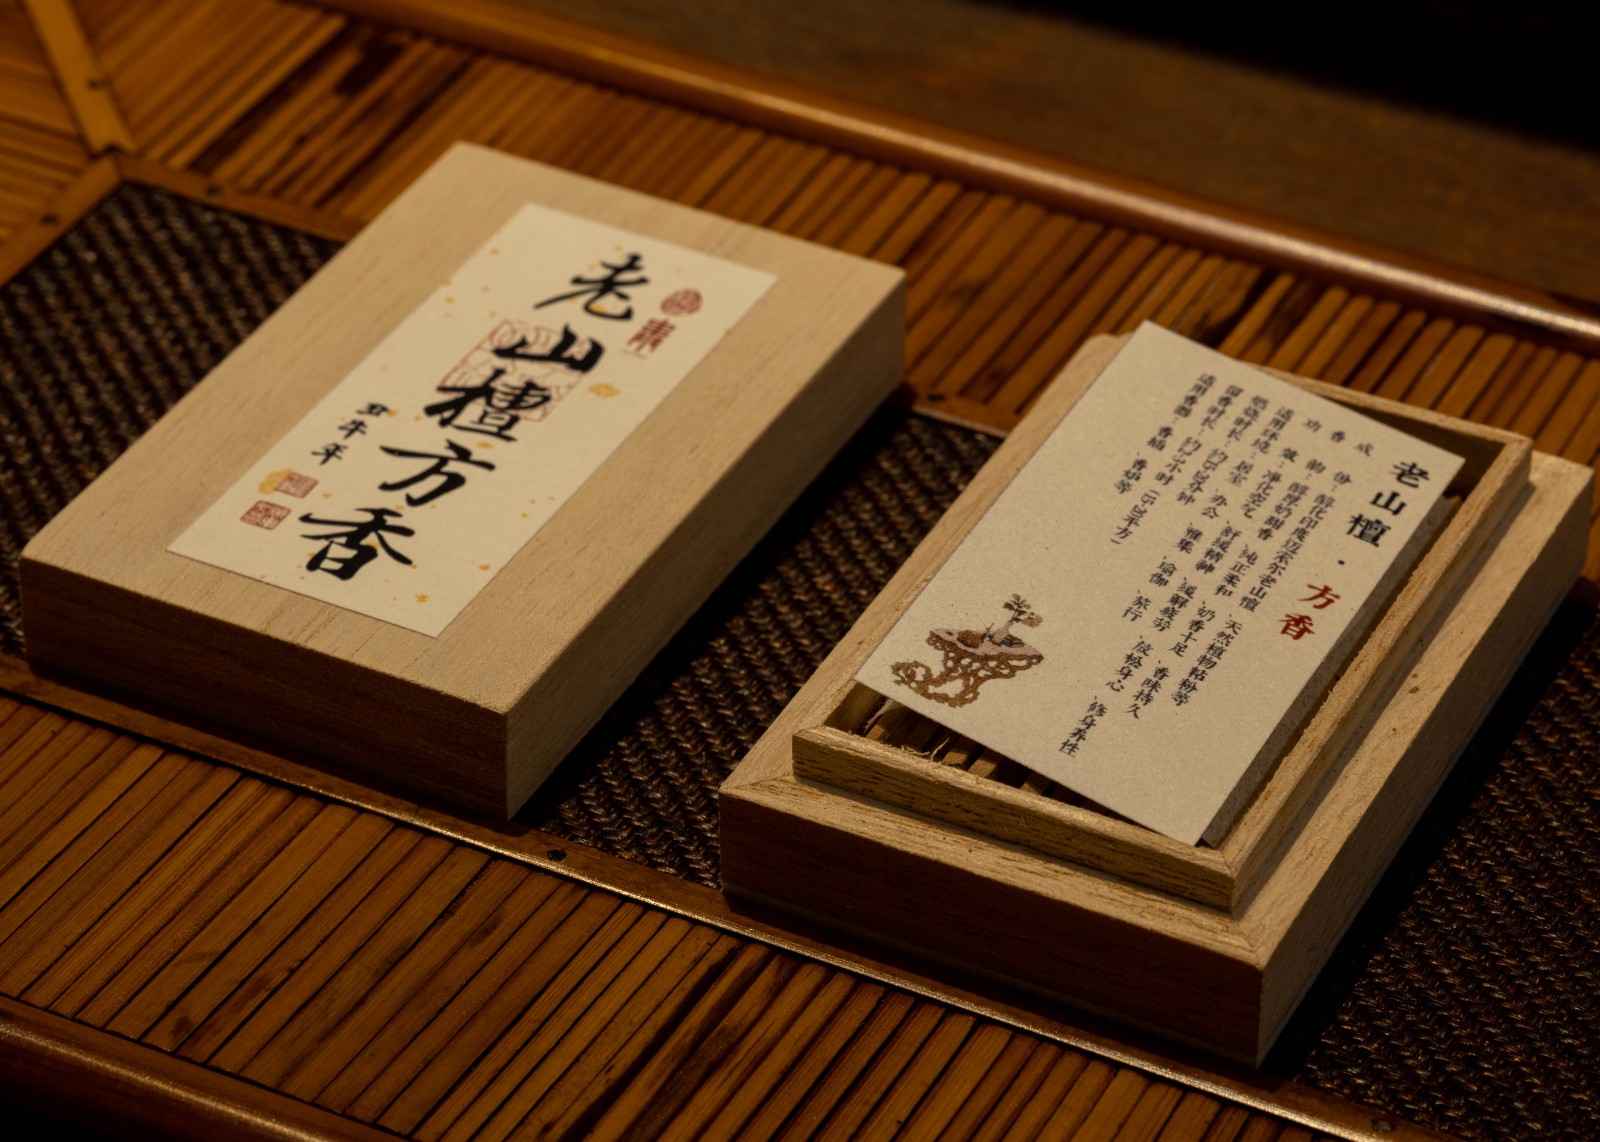 老山檀方香
丑牛年
老山檀·方香
成份：醇化印度迈索尔老山檀、天然植物粘粉等
香韵：醇厚奶甜香、纯正柔和、奶香十足、香味持久
功效：净化空气、舒缓精神、缓解疲劳、放松身心、修身养性
适用环境：居室、办公、雅集、瑜伽、旅行
燃烧时长：约50分钟
留香时长：约2小时
适用香器：香插、香炉等